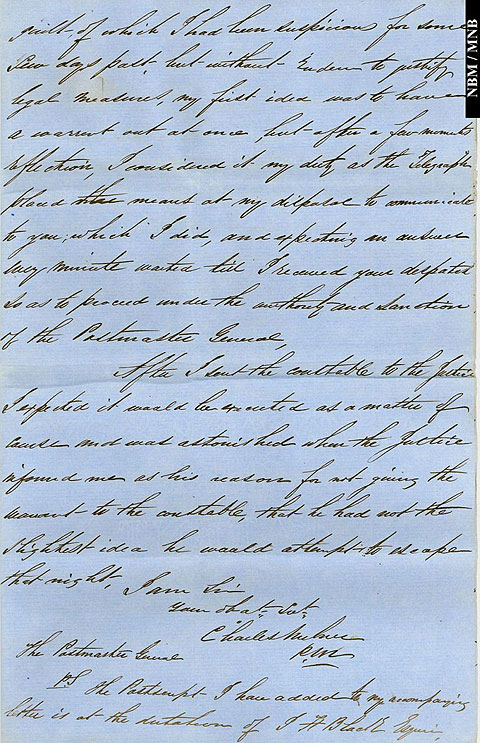 guilt of which I had been suspicious for some
few days past but without Evidence to justify
legal measures, my first idea was to have
a warrent out at once, but after a few moments
reflection I considered it my duty as the Telegraph
placed the means at my disposal to communicate
to you; which I did, and expecting an answer
every minute waited till I received your despatch
so as to proceed under the authority and sanction
of the Postmaster General,
After I sent the constable to the Justice
I expected it would be executed as a matter of
course and was astonished when the Justice
informed me as his reason for not giving the
warrant to the constable, that he had not the
slightest idea he would attempt to escape
that night, I am Sir
Your Obdt. Svt.
Charles
P.M
The Postmaster General
P.S The Postscript I have added to my accompanying
letter is at the dictation of J A Black Esquire,
NBM / MNB